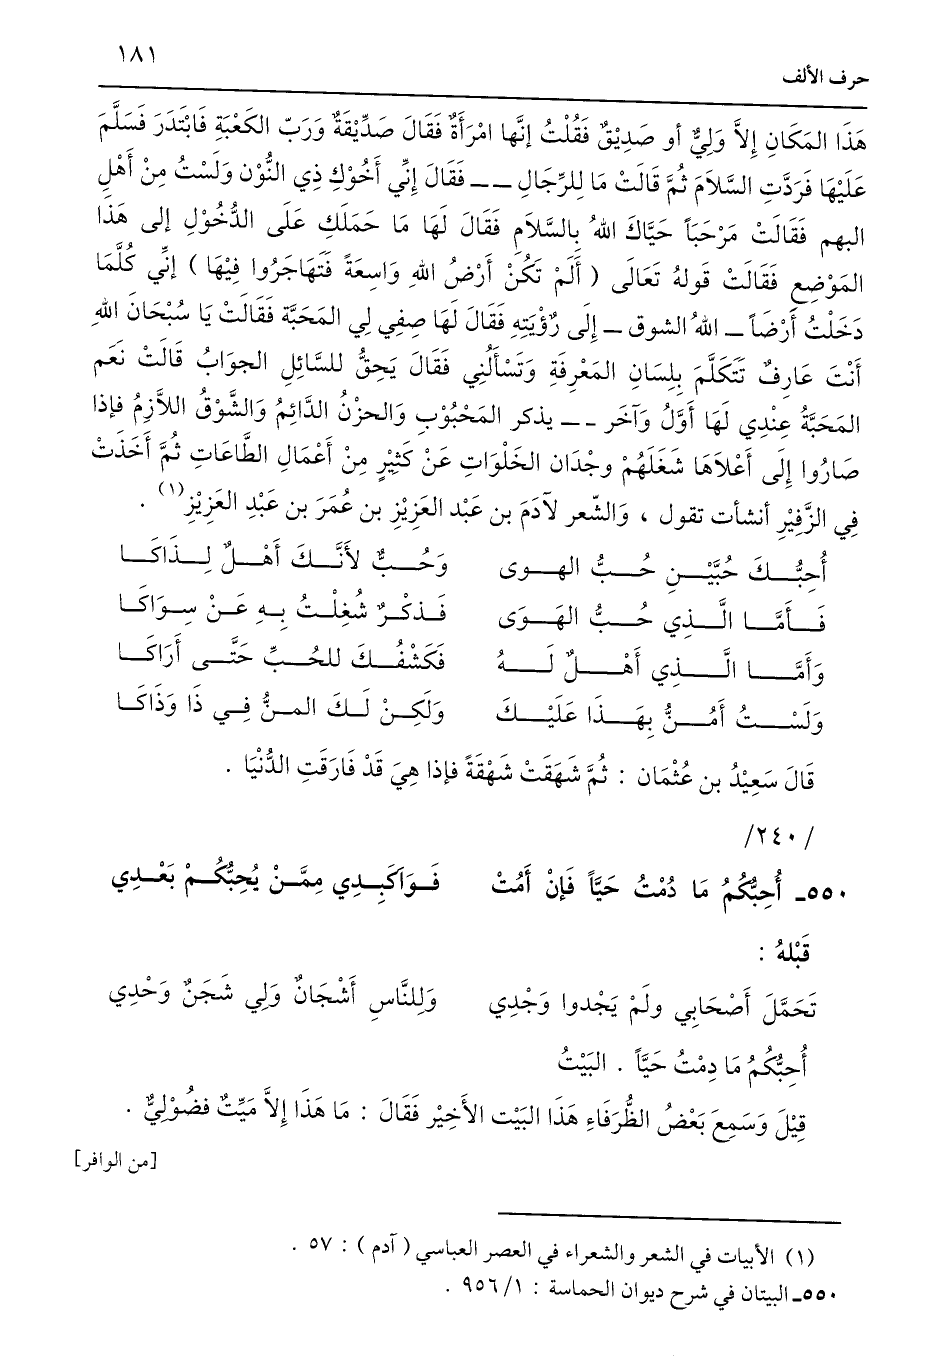 ١٨١
حرف الألف
هَذَا المَكَانِ إِلاَّ وَلِيٌّ أو صَدِيْقٌ فَقُلْتُ إِنَّها امْرَأَةٌ فَقَالَ صَدِّيْقَةٌ وَرَبّ الكَعْبَةِ فَابْتَدَرَ فَسَلَّمَ
عَلَيْهَا فَرَدَّتِ السَّلاَمَ ثُمَّ قَالَتْ مَا لِلرِّجَالِ ــ ــ فَقَالَ إِنِّي أَخُوْكِ ذِي النُّوْن وَلَسْتُ مِنْ أَهْلِ
البهم فَقَالَتْ مَرْحَبَاً حَيَّاكَ اللهُ بالسَّلاَمِ فَقَالَ لَهَا مَا حَمَلَكِ عَلَى الدُّخُوْلِ إلى هَذا
المَوْضِعِ فَقَالَتْ قَولهُ تَعَالَى ( أَلَمْ تَكُنْ أَرْضُ اللهِ وَاسِعَةً فَتَهَاجَرُوا فِيْهَا ) إنِّي كُلَّمَا
دَخَلْتُ أَرْضَاً ــ اللهُ الشوق ــ إلَى رُؤْيَتِهِ فَقَالَ لَهَا صِفِي لِي المَحَبَّة فَقَالَتْ يَا سُبْحَانَ اللهِ
أَنْتَ عَارِفٌ تَتَكَلَّم بِلِسَانِ المَعْرِفَةِ وَتَسْأَلُنِي فَقَالَ يَحِقُّ للسَّائِلِ الجوَابُ قَالَتْ نَعَم
المَحَبَّةُ عِنْدِي لَهَا أَوَّلُ وَآخَر ــ ــ يذكر المَحْبُوْبِ وَالحزْنُ الدَّائِمُ وَالشَّوْقُ اللاَّزِمُ فإذا
صَارُوا إلَى أَعْلاَهَا شَغَلَهُمْ وجْدَان الخَلَوَاتِ عَنْ كَثِيْرٍ مِنْ أَعْمَالِ الطَّاعَاتِ ثُمَّ أَخَذَتْ
فِي الزَّفِيْرِ أنشأت تقول ، وَالشّعر لآدَمَ بن عَبْد العَزِيْزِ بن عُمَرَ بن عَبْدِ العَزِيْزِ(١) .
أُحِبُّــكَ حُبَّيْــنِ حُــبُّ الهــوى وَحُــبٌّ لأَنَّــكَ أَهْــلٌ لِــذَاكَــا
فَــأَمَّــا الَّــذِي حُــبُّ الهَــوَى فَــذكْــرٌ شُغِلْــتُ بِــهِ عَــنْ سِــوَاكَــا
وَأَمَّــا الَّــذِي أَهْــلٌ لَــهُ فَكَشْفُــكَ للحُــبِّ حَتَّــى أَرَاكَــا
وَلَسْــتُ أَمُــنُّ بِهَــذَا عَلَيْــكَ وَلَكِــنْ لَــكَ المــنُّ فِــي ذَا وَذَاكَــا
قَالَ سَعِيْدُ بن عُثْمَان : ثُمَّ شَهَقَتْ شَهْقَةً فإذا هِيَ قَدْ فَارَقَتِ الدُّنْيَا .
/ ٢٤٠/
٥٥٠ـ أُحِبُّكُمُ مَا دُمْتُ حَيَّاً فَإنْ أَمُتْ فَــوَاكَبِــدِي مِمَّــنْ يُحِبُّكُــمْ بَعْــدِي
قَبْلهُ :
تَحَمَّلَ أَصْحَابِي ولَمْ يَجْدوا وَجْدِي وَلِلنَّاسِ أَشْجَانٌ وَلِي شَجَنٌ وَحْدِي
أُحِبُّكُمُ مَا دِمْتُ حَيَّاً . البَيْتُ
قِيْلَ وَسَمِعَ بَعْضُ الظُّرَفَاءِ هَذَا البَيْت الأَخِيْر فَقَالَ : مَا هَذَا إلاَّ مَيِّت فضُوْلِيٌّ .
[من الوافر]
(١) الأبيات في الشعر والشعراء في العصر العباسي ( آدم ) : ٥٧ .
٥٥٠ـ البيتان في شرح ديوان الحماسة : ٩٥٦/١ .